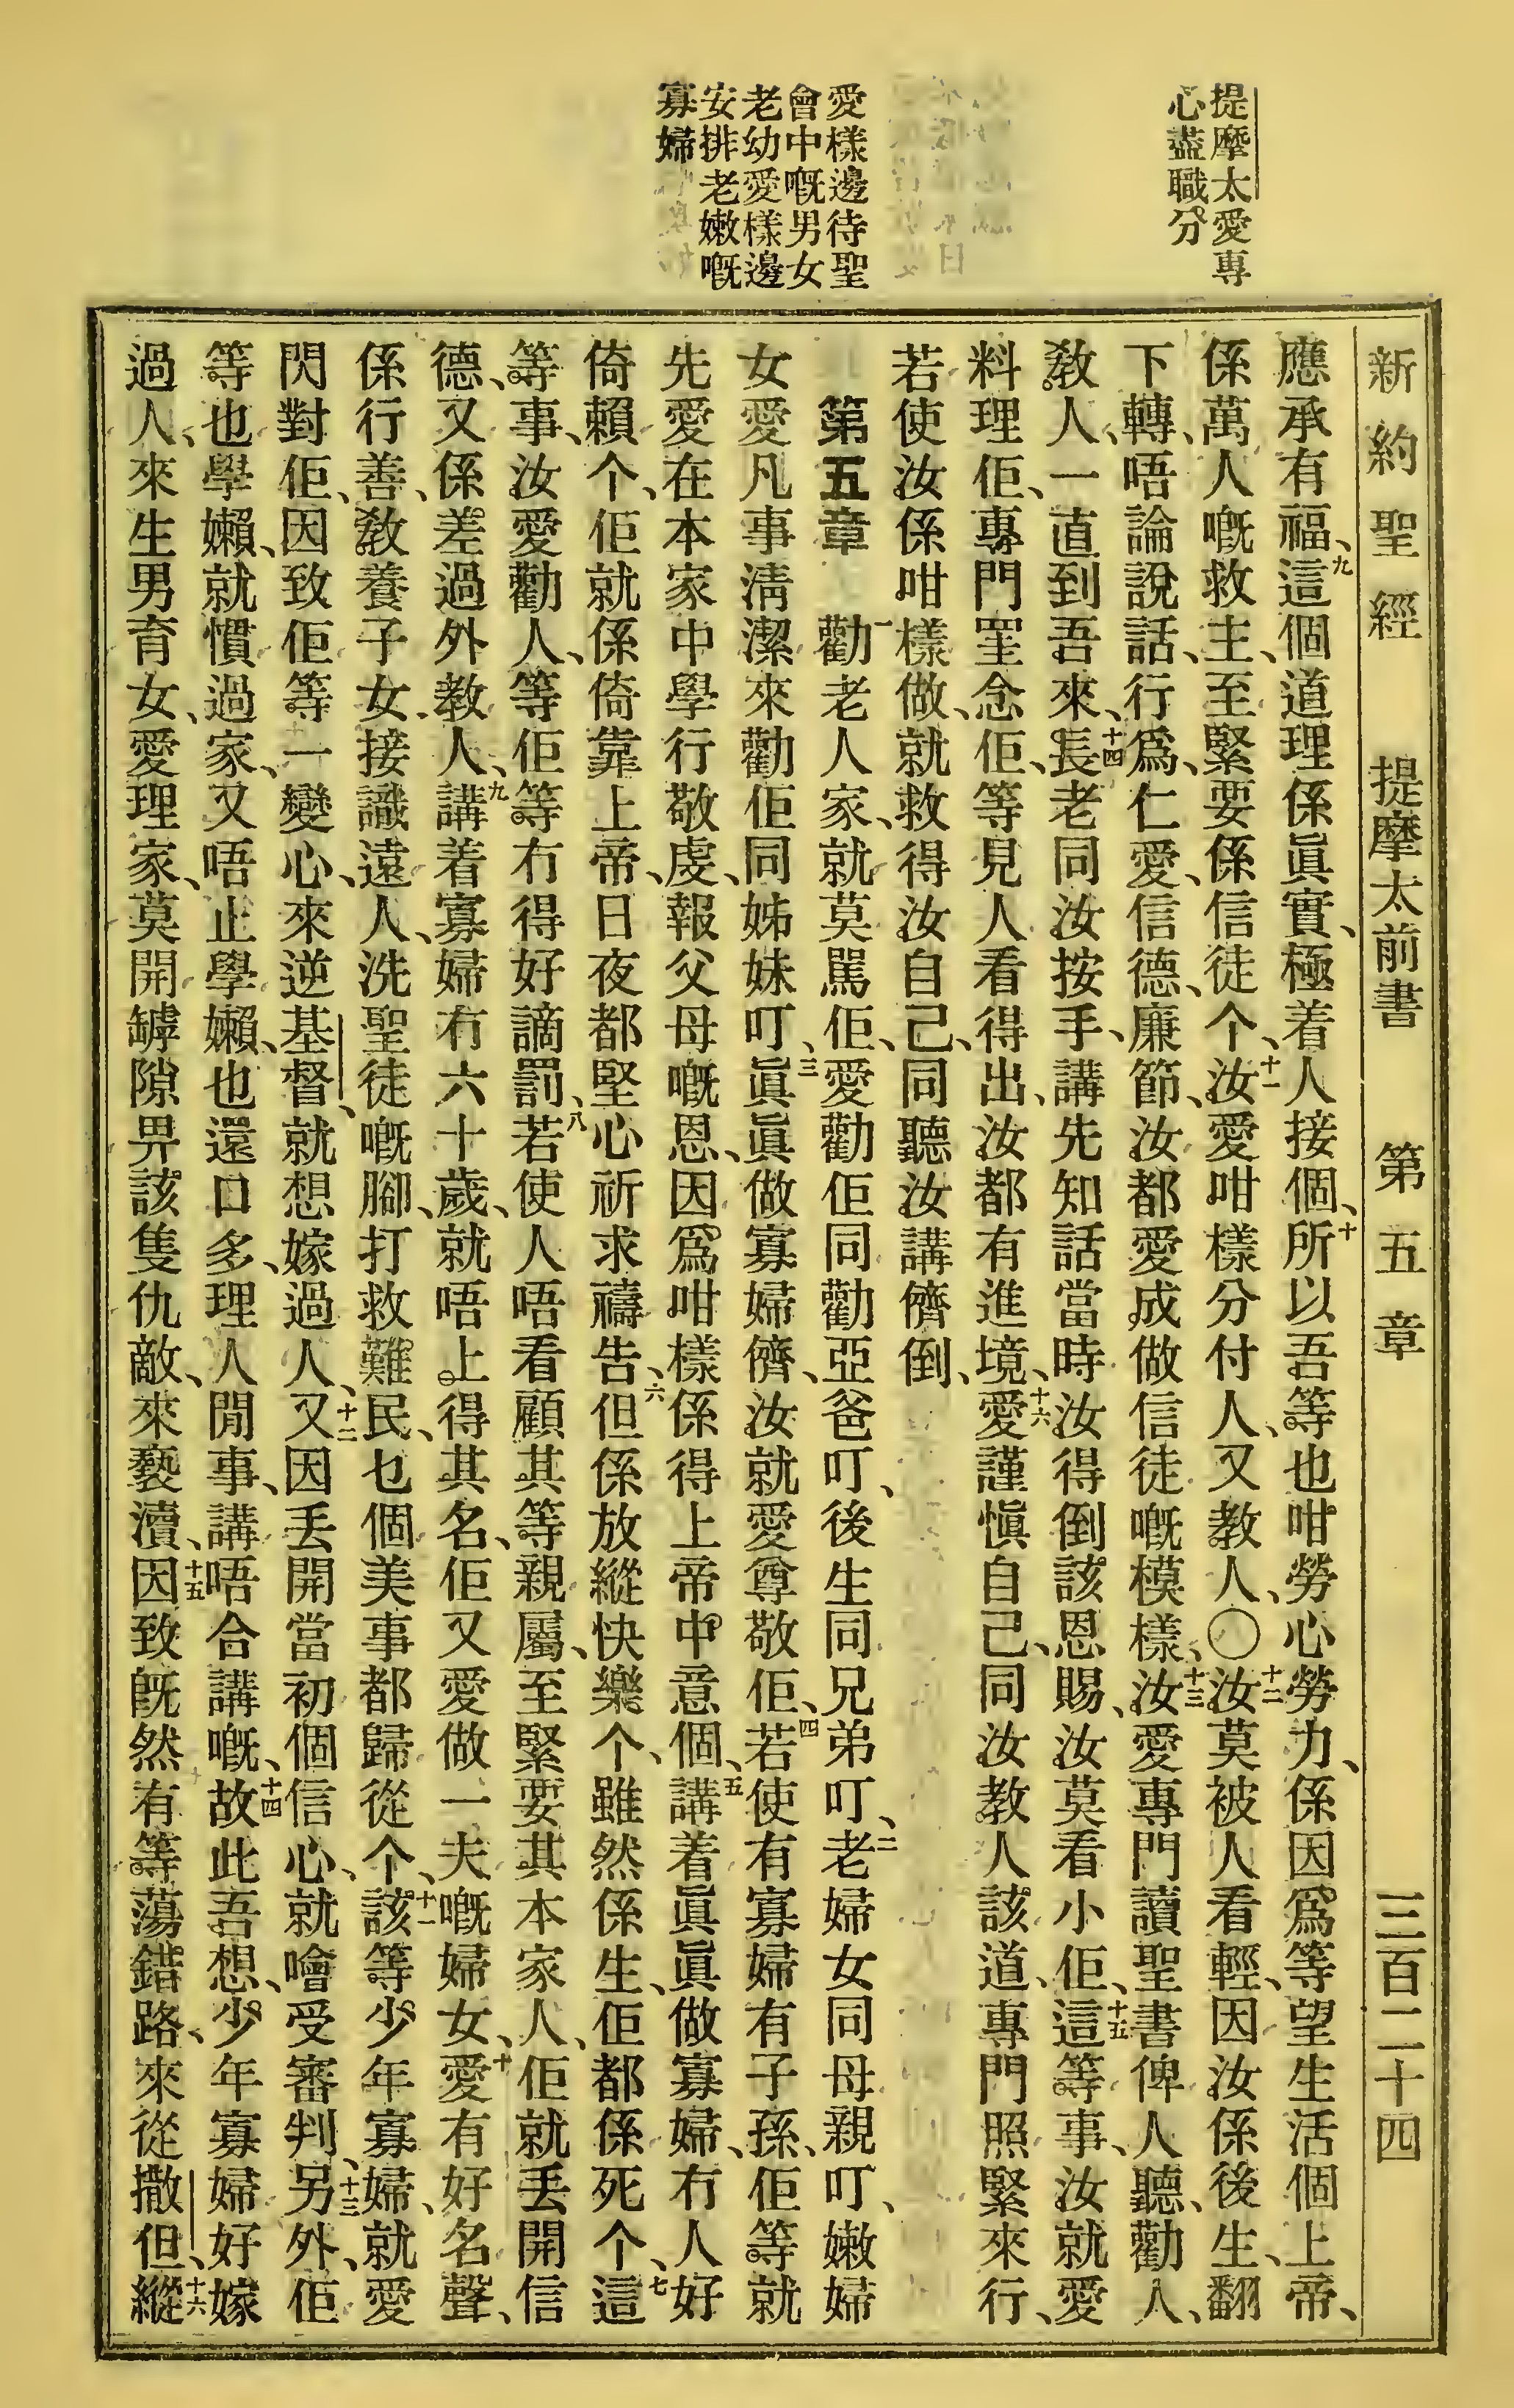 提摩太愛專
心盡職分
愛樣邊待聖
會中嘅男女
老幼愛樣邊
安排老嫩嘅
寡婦
新約聖經 提摩太前書 第五章 三百二十四
應承有福、九這個道理係眞實、極着人接個、十所以吾等也咁勞心勞力、係因爲等望生活個上帝、
係萬人嘅救主、至緊要係信徒个、十一汝愛咁樣分付人、又教人、〇十二汝莫被人看輕、因汝係後生、翻
下轉、唔論說話、行爲、仁愛、信德、廉節、汝都愛成做信徒嘅模樣、十三汝愛專門讀聖書俾人聽、勸人、
教人、一直到吾來、十四長老同汝按手、講先知話當時汝得倒該恩賜、汝莫看小佢、十五這等事、汝就愛
料理佢、專門罣念佢、等見人看得出、汝都有進境、十六愛謹愼自己、同汝教人該道、專門照緊來行、
若使汝係咁樣做、就救得汝自己、同聽汝講儕倒、
第五章 一勸老人家、就莫駡佢、愛勸佢同勸亞爸叮、後生同兄弟叮、二老婦女同母親叮、嫩婦
女愛凡事淸潔來勸佢同姊妹叮、三眞眞做寡婦儕、汝就愛尊敬佢、四若使有寡婦有子孫、佢等就
先愛在本家中學行敬虔、報父母嘅恩、因爲咁樣係得上帝中意個、五講着眞眞做寡婦、冇人好
倚賴个、佢就係倚靠上帝、日夜都堅心祈求禱告、六但係放縱快樂个、雖然係生、佢都係死个、七這
等事、汝愛勸人、等佢等冇得好謫罰、八若使人唔看顧其等親屬、至緊要其本家人、佢就丢開信
德、又係差過外教人、九講着寡婦冇六十歲、就唔上得其名、佢又愛做一夫嘅婦女、十愛有好名聲、
係行善、教養子女、接識遠人、洗聖徒嘅腳、打救難民、乜個美事都歸從个、十一該等少年寡婦、就愛
閃對佢、因致佢等一變心、來逆基督、就想嫁過人、十二又因丢開當初個信心、就噲受審判、十三另外、佢
等也學嬾、就慣過家、又唔止學嬾、也還口多、理人閒事、講唔合講嘅、十四故此吾想、少年寡婦好嫁
過人、來生男育女、愛理家、莫開罅隙畀該隻仇敵、來褻瀆、十五因致旣然有等蕩錯路、來從撒但、十六縱